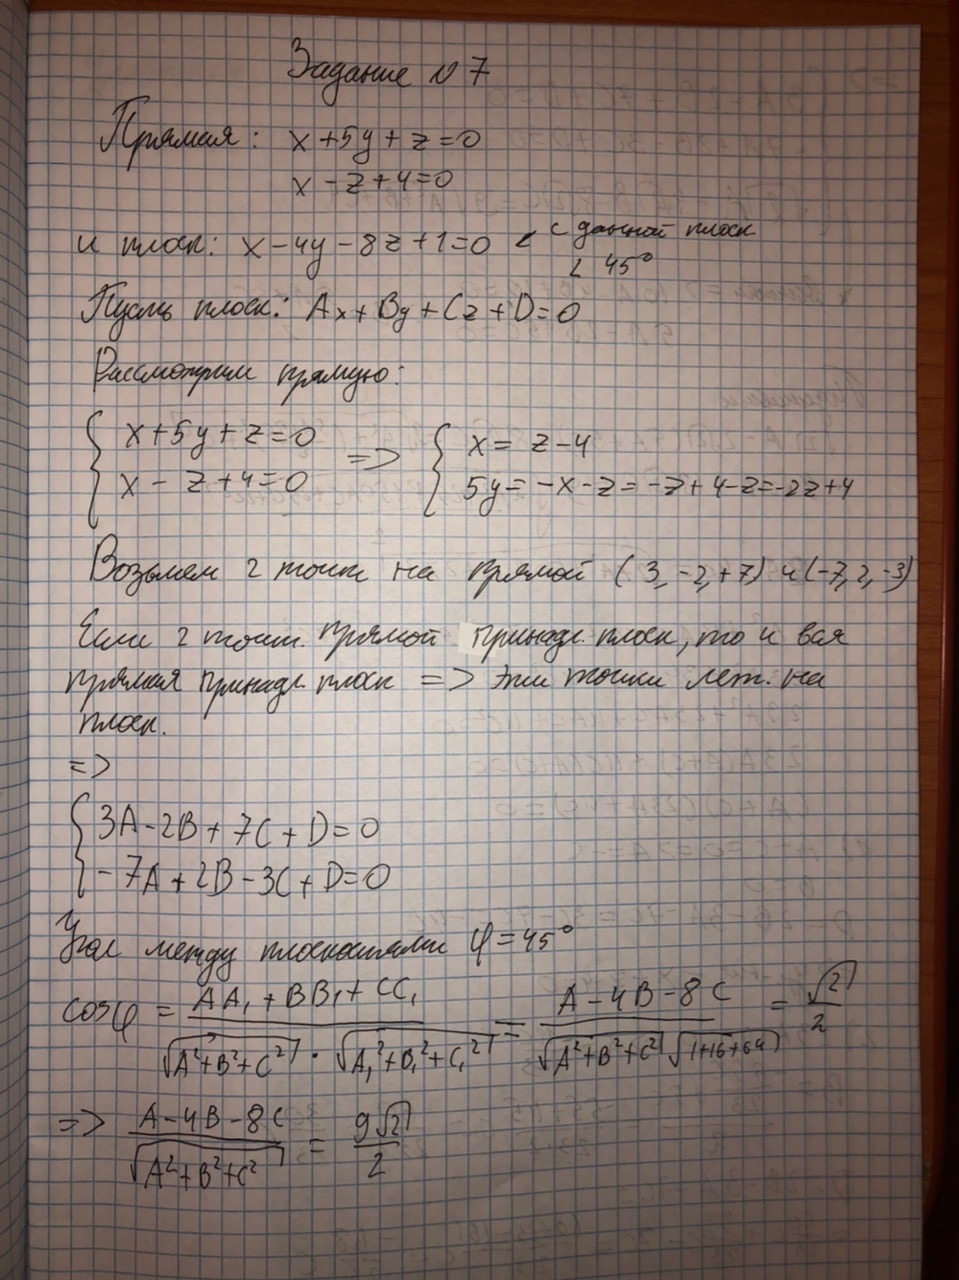 Задание N 7
Прямая: x+5y+z=0
x-z+4=0
и плоск: x-4y-8z+1=0 с данной плоск
∠ 45°
Пусть плоск: Ax+By+Cz+D=0
Рассмотрим прямую:
{ x+5y+z=0 => { x= z-4
x - z+4=0 5y= -x-z= -z+4-z=-2z+4
Возьмем 2 точки на прямой (3,-2,+7) и (-7,2,-3)
Если 2 точк. прямой принадл плоск, то и вся
прямая принадл плоск => эти точки леж. на
плоск.
=>
{ 3A-2B+7C+D=0
-7A+2B-3C+D=0
Угол между плоскостями φ=45°
cosφ = (AA₁+BB₁+CC₁)/(√(A²+B²+C²)·√(A₁²+B₁²+C₁²)) = (A-4B-8C)/(√(A²+B²+C²)√(1+16+64)) = √2/2
=> (A-4B-8C)/√(A²+B²+C²) = 9√2/2